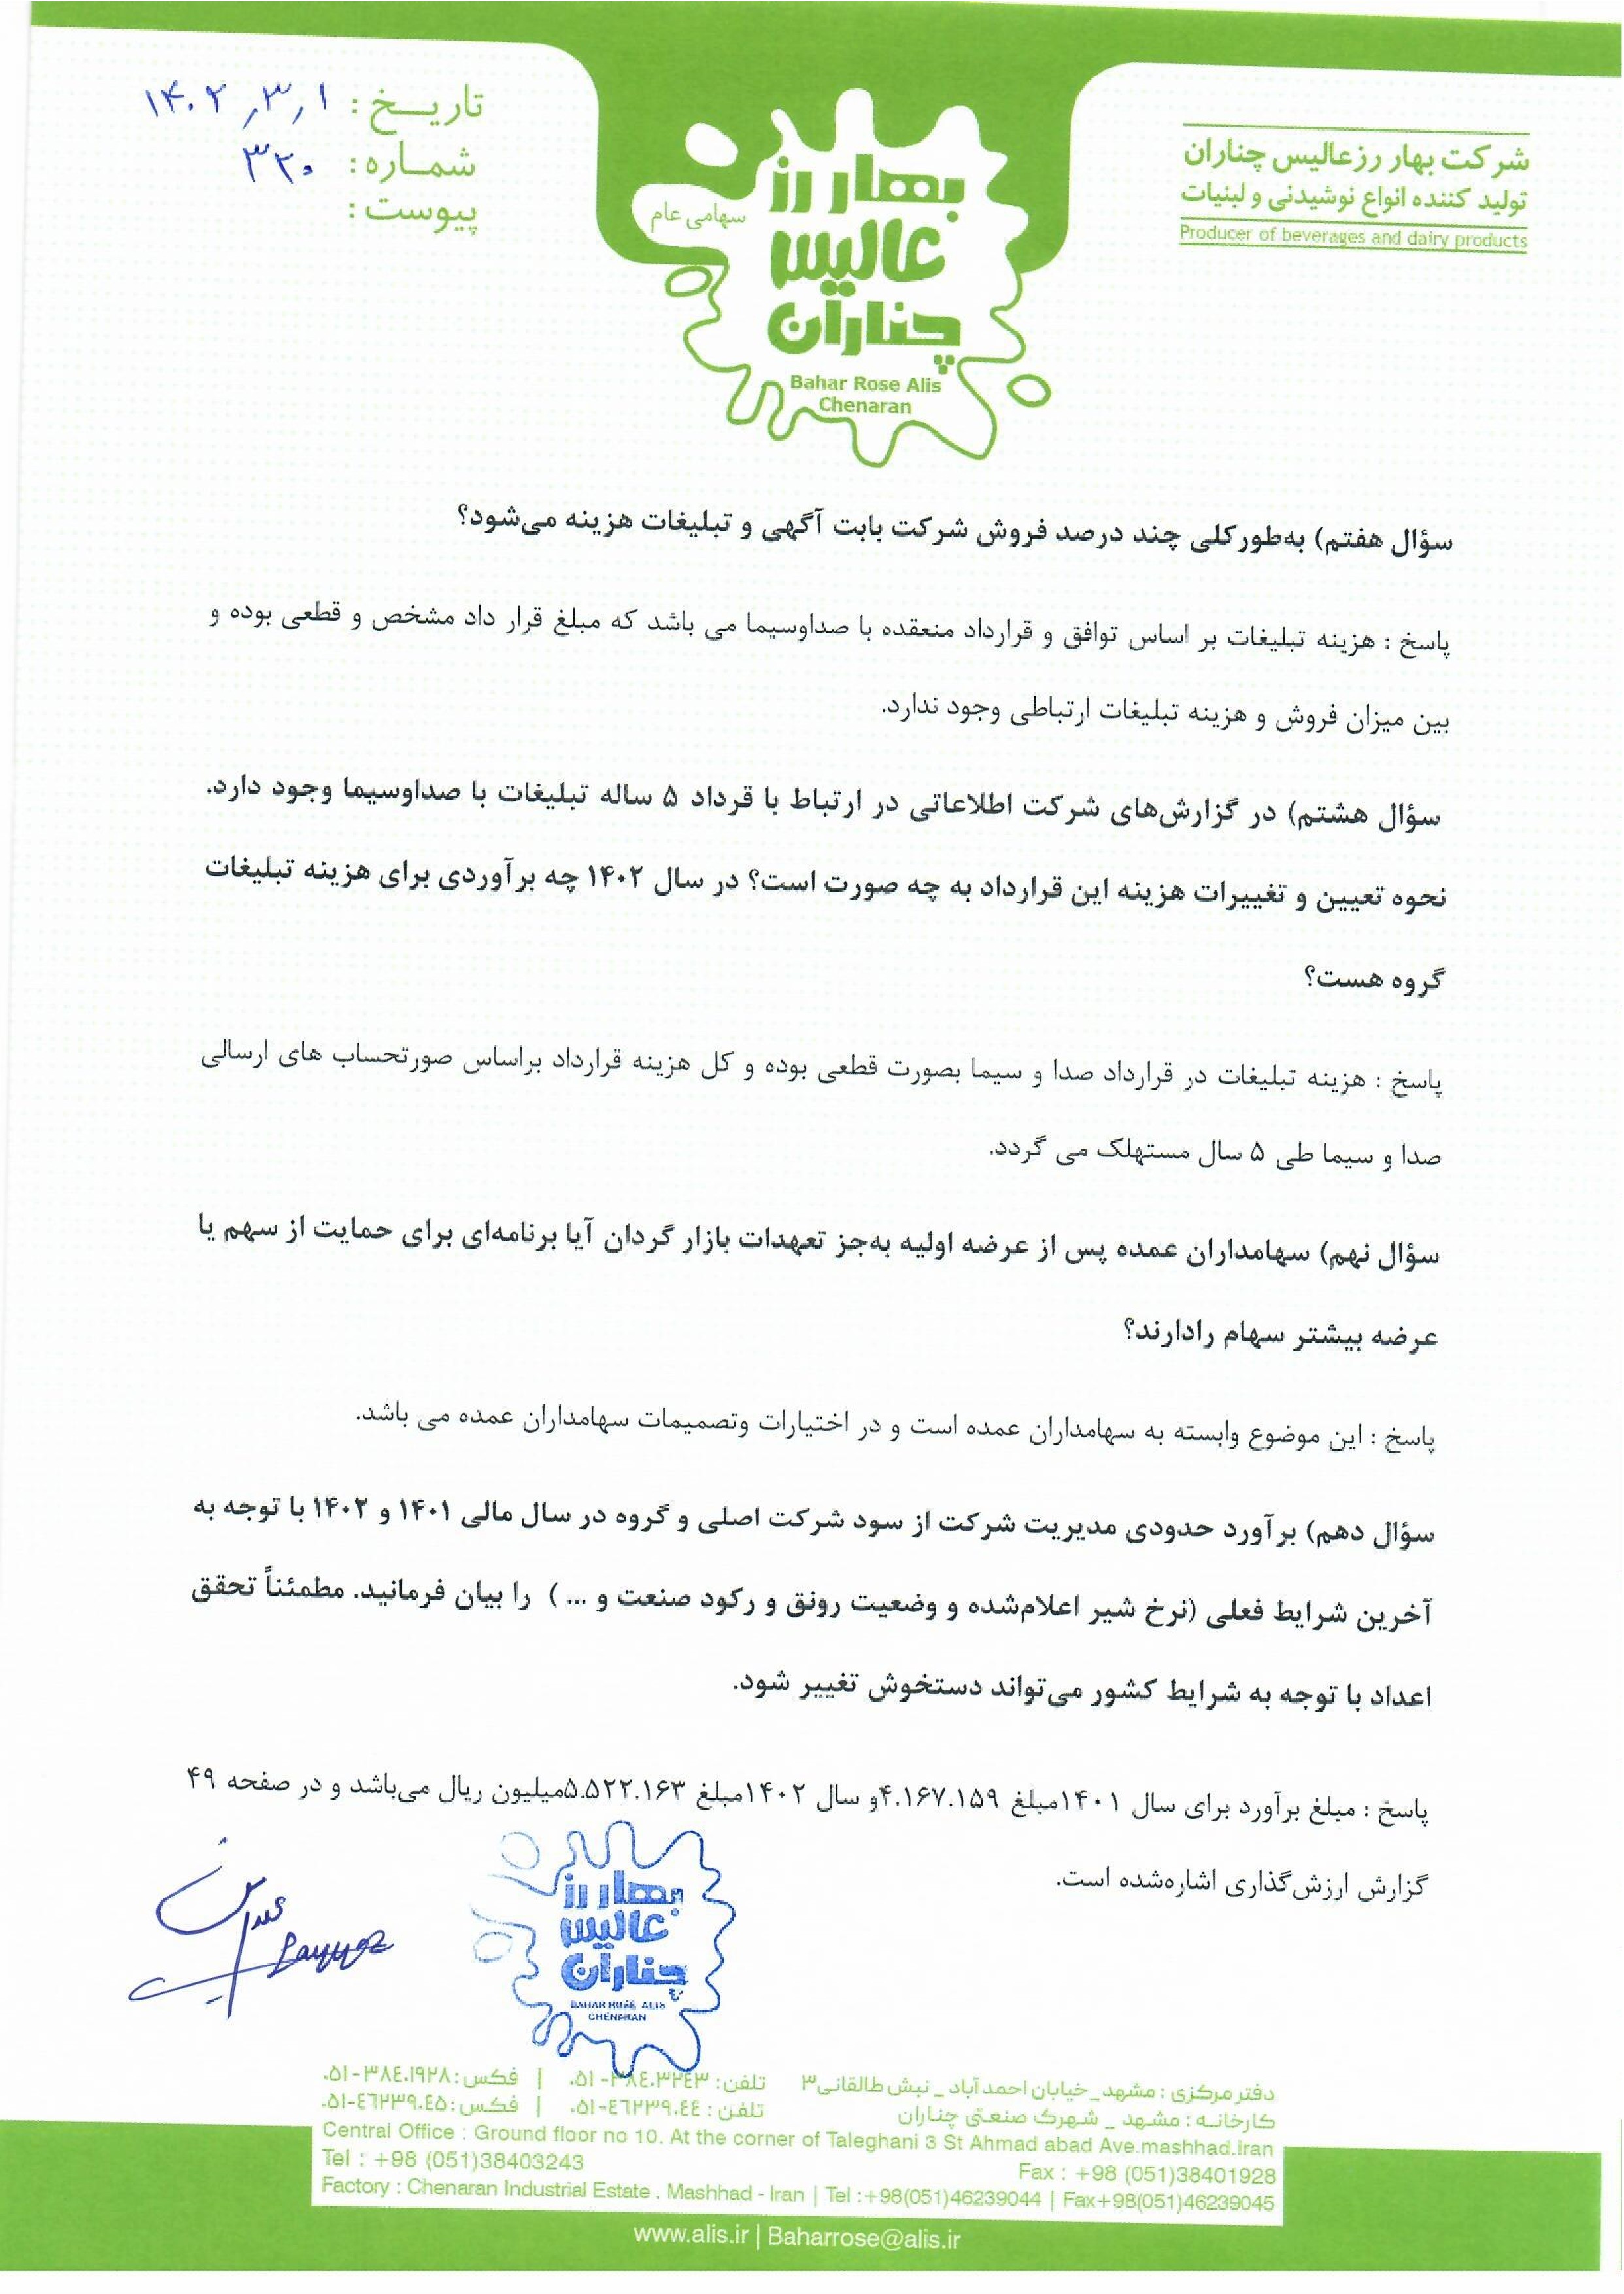 شرکت بهار رز عالیس چناران
تولید کننده انواع نوشیدنی و لبنیات
Producer of beverages and dairy products
بهار رز
عالیس
چناران
سهامی عام
Bahar Rose Alis
Chenaran
تاریخ: ۱۴۰۲,۳,۱
شماره: ۳۲۰
پیوست:
سؤال هفتم) به‌طورکلی چند درصد فروش شرکت بابت آگهی و تبلیغات هزینه می‌شود؟
پاسخ : هزینه تبلیغات بر اساس توافق و قرارداد منعقده با صداوسیما می باشد که مبلغ قرار داد مشخص و قطعی بوده و
بین میزان فروش و هزینه تبلیغات ارتباطی وجود ندارد.
سؤال هشتم) در گزارش‌های شرکت اطلاعاتی در ارتباط با قرداد ۵ ساله تبلیغات با صداوسیما وجود دارد.
نحوه تعیین و تغییرات هزینه این قرارداد به چه صورت است؟ در سال ۱۴۰۲ چه برآوردی برای هزینه تبلیغات
گروه هست؟
پاسخ : هزینه تبلیغات در قرارداد صدا و سیما بصورت قطعی بوده و کل هزینه قرارداد براساس صورتحساب های ارسالی
صدا و سیما طی ۵ سال مستهلک می گردد.
سؤال نهم) سهامداران عمده پس از عرضه اولیه به‌جز تعهدات بازار گردان آیا برنامه‌ای برای حمایت از سهم یا
عرضه بیشتر سهام رادارند؟
پاسخ : این موضوع وابسته به سهامداران عمده است و در اختیارات وتصمیمات سهامداران عمده می باشد.
سؤال دهم) برآورد حدودی مدیریت شرکت از سود شرکت اصلی و گروه در سال مالی ۱۴۰۱ و ۱۴۰۲ با توجه به
آخرین شرایط فعلی (نرخ شیر اعلام‌شده و وضعیت رونق و رکود صنعت و ... ) را بیان فرمانید. مطمئناً تحقق
اعداد با توجه به شرایط کشور می‌تواند دستخوش تغییر شود.
پاسخ : مبلغ برآورد برای سال ۱۴۰۱مبلغ ۴.۱۶۷.۱۵۹و سال ۱۴۰۲مبلغ ۵.۵۲۲.۱۶۳میلیون ریال می‌باشد و در صفحه ۴۹
گزارش ارزش‌گذاری اشاره‌شده است.
بهار رز
عالیس
چناران
BAHAR ROSE ALIS
CHENARAN
دفتر مرکزی : مشهد_خیابان احمد آباد _ نبش طالقانی۳ تلفن : ۳۸٤۰۳۲٤۳-۰۵۱ | فکس: ۳۸٤۰۱۹۲۸-۰۵۱
کارخانه : مشهد _ شهرک صنعتی چناران تلفن : ٤٦۲۳۹۰٤٤-۰۵۱ | فکس: ٤٦۲۳۹۰٤۵-۰۵۱
Central Office : Ground floor no 10. At the corner of Taleghani 3 St Ahmad abad Ave.mashhad.Iran
Tel : +98 (051)38403243 Fax : +98 (051)38401928
Factory : Chenaran Industrial Estate . Mashhad - Iran | Tel :+98(051)46239044 | Fax+98(051)46239045
www.alis.ir | Baharrose@alis.ir